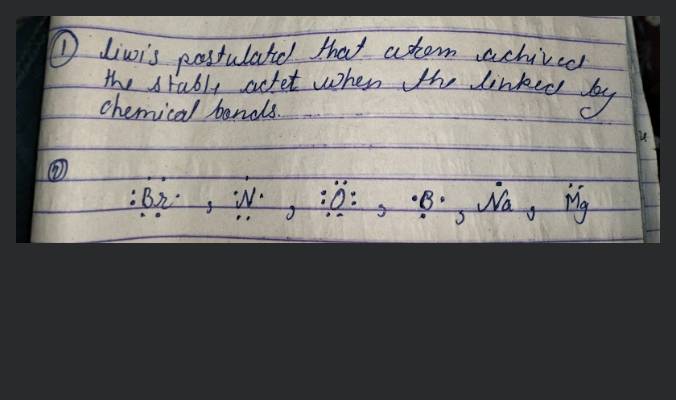 ① liwi's postulated that atom achived
the stable octet when the linked by
chemical bonds.
② :Br· , ·N· , :O: , ·B· , Na , Mg